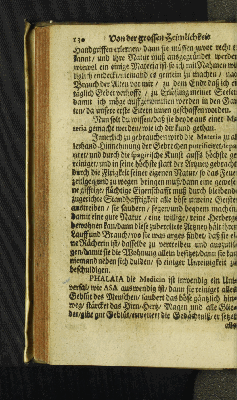 130 Von der grossen Heimlichkeit
Handgriffen erlernen / dann sie müssen zuvor recht er-
kannt / und ihre Natur muß ausgegründet werden
wiewol ein einige Materia ist so ich mit Nahmen
niemand zu gemein zu machen / nach
Brauch der Alten vor mir / zu dem Ende daß ich
täglich Gebet verhoffe / zu Erlösung meiner Seelen
damit ich möge auffgenommen werden in den
ten / da unsere erste Eltern innen geschaffen worden.
Nun solt du wissen / daß sie beyde aus einer Ma-
teria gemacht werden / wie ich dir kund gethan.
Innerlich zu gebrauchen wird die Materia zu al-
lerhand Entnehmung der Gebrechen
get / und durch die spagyrische Kunst auffs höchste ge-
reiniget / und in seine höchste statt der Artzney gebracht
durch die Fixigkeit seiner eigenen Natur / so das Feuer
zeitiget und zu wegen bringen muß / dann eine gewisse
flüchtige Eigenschafft muß durch bleibende
zugerichte Standhafftigkeit alle böse unreine Geister
austreiben / sie säubern / fegen und bequem machen /
damit eine gute Natur / eine willige / reine Herberge
bewohnen kan / dann diese zubereitete Artzney hält ihren
Lauff und Brauch / wo sie was arges findet / daß sie
Rächerin ist / dasselbe zu vertreiben und auszutil-
gen / damit sie die Wohnung allein besitze / dann sie kan
niemand neben sich dulden / so einiger Unreinigkeit zu
beschuldigen.
PHALAIA die Medicin ist inwendig ein Univer-
versal / wie ASA auswendig ist / dann sie reiniget alles
Geblüt des Menschen / säubert das böse gäntzlich hin-
weg / stärcket das Hirn / Hertz / Magen und alle Glie-
der / gibt gut Geblüt / erneuert die Gedächtniß / ersetzet
alles